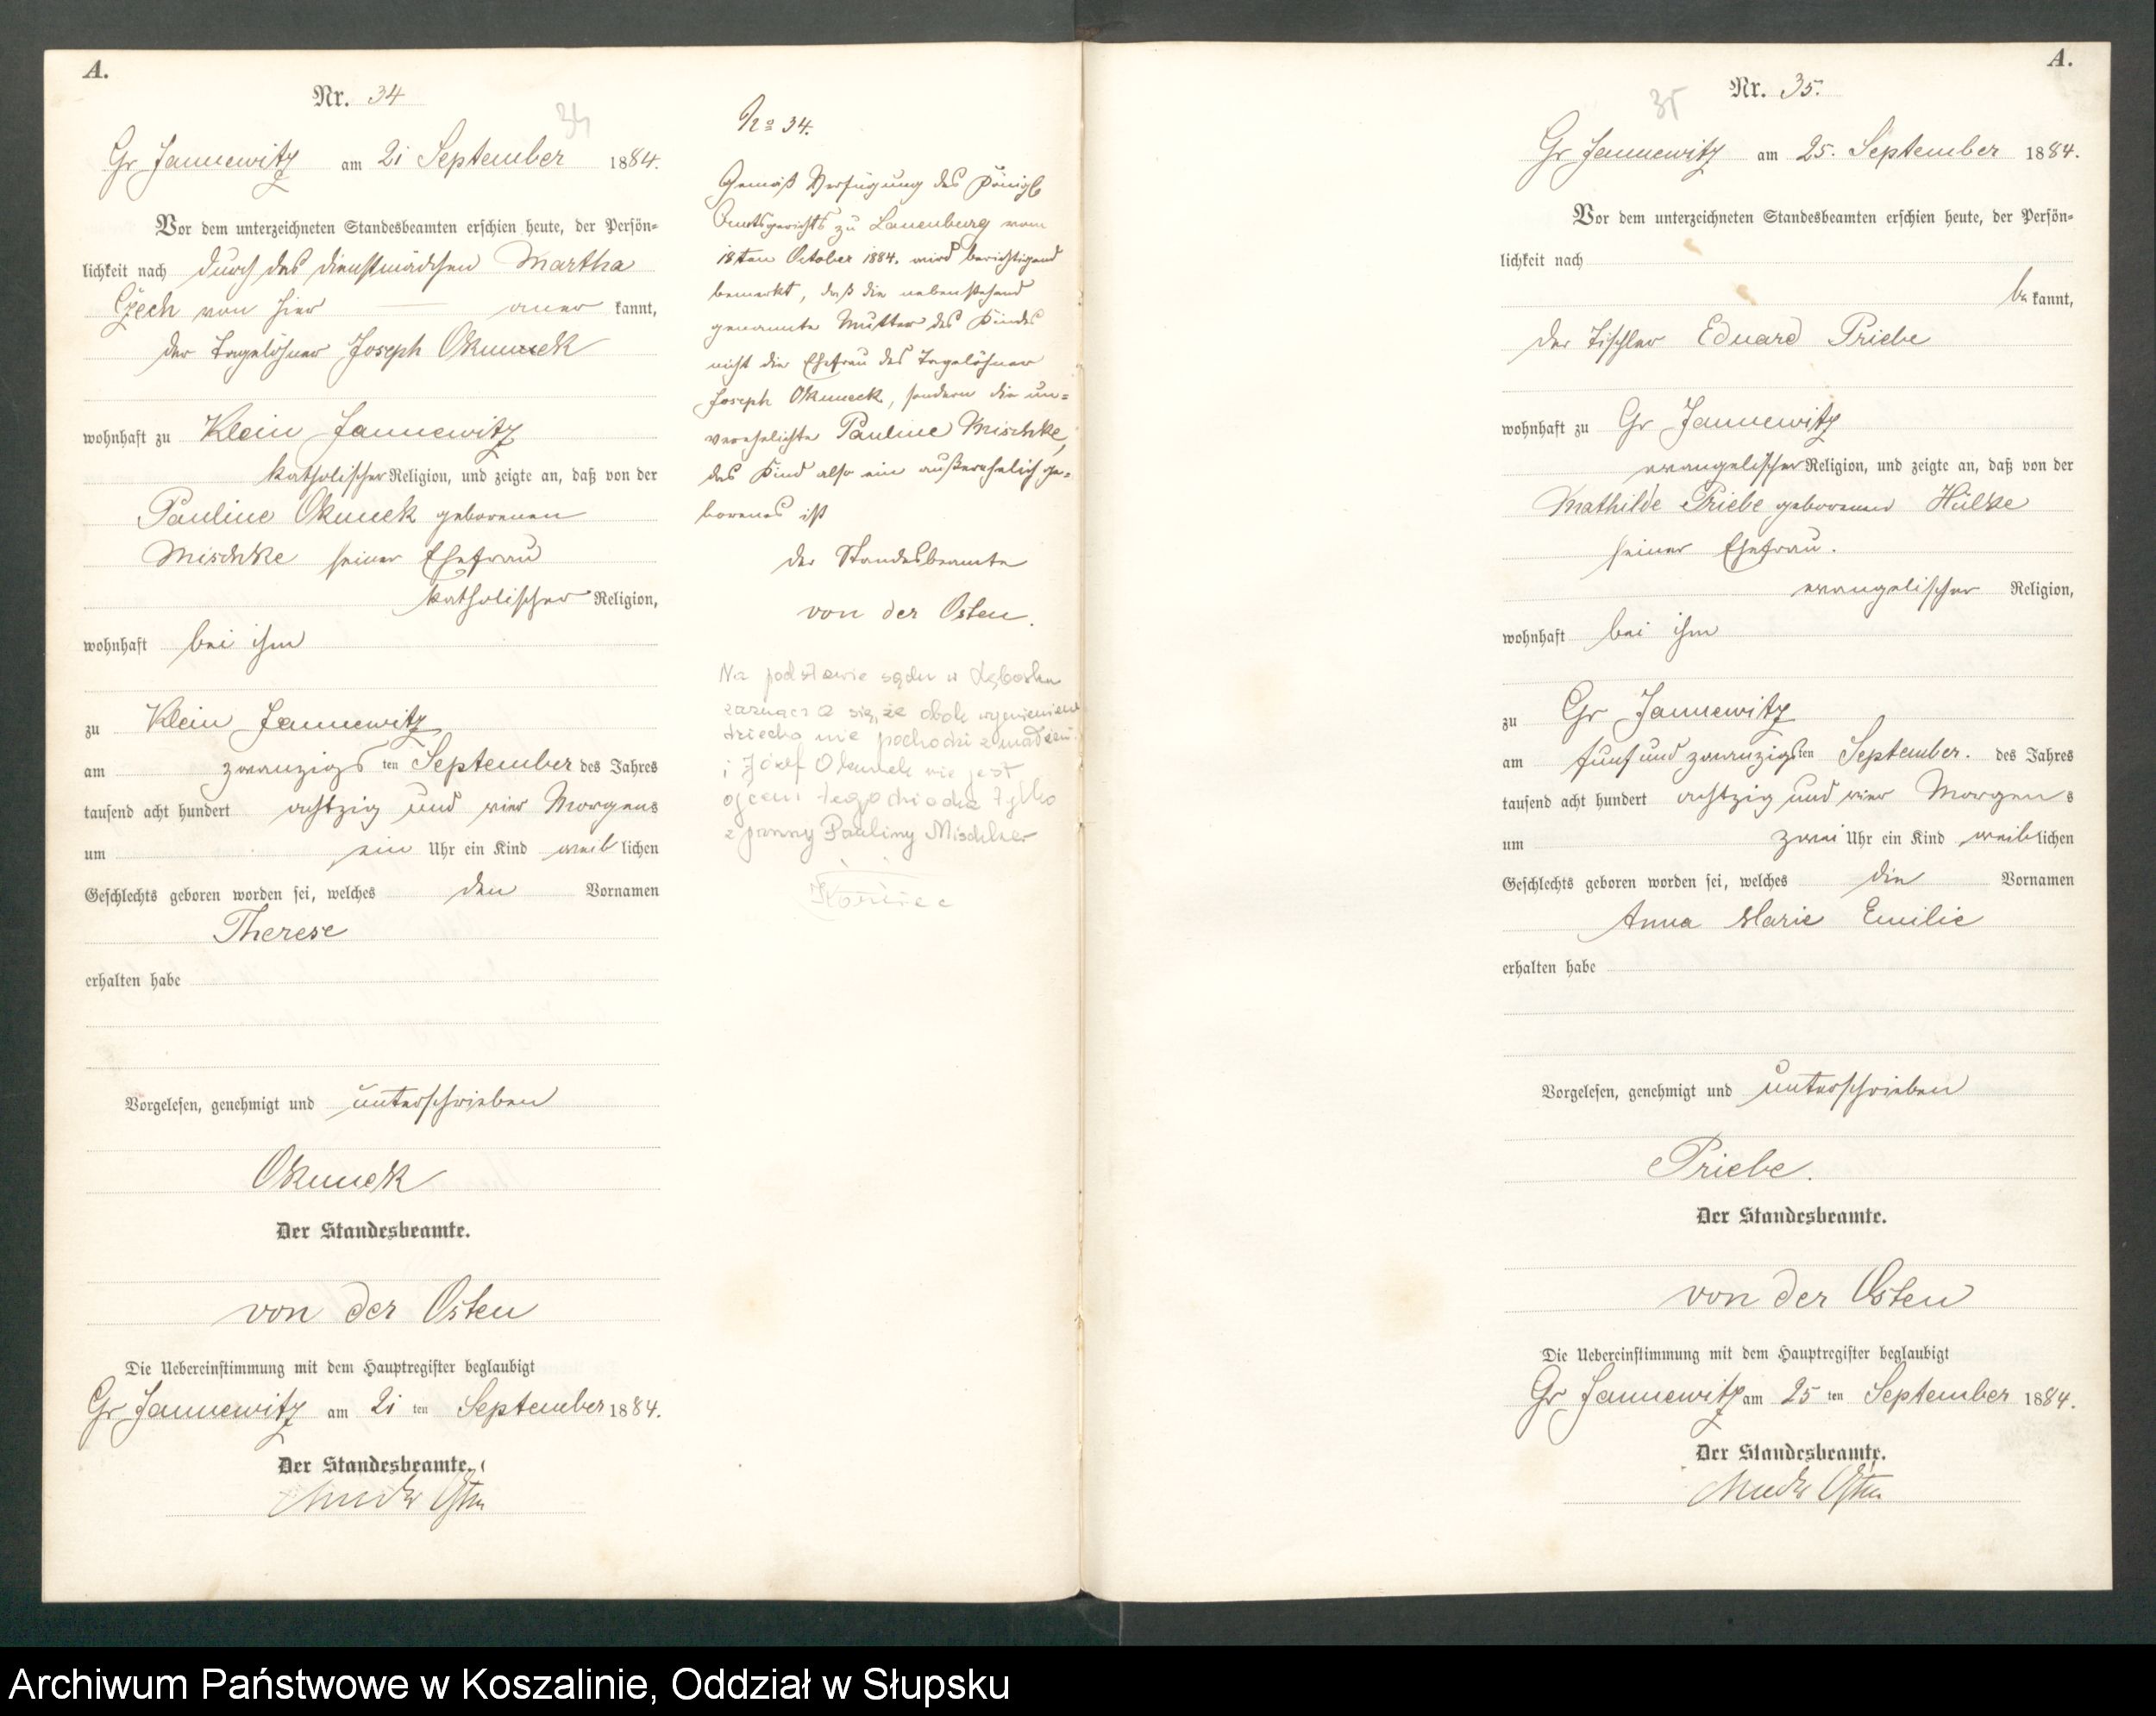 A.
Nr. 34
34
Gr Jannewitz am 21 September 1884.
Vor dem unterzeichneten Standesbeamten erschien heute, der Persön=
lichkeit nach durch das Dienstmädchen Martha
Czech von hier aner kannt,
der Tagelöhner Joseph Okuneck
wohnhaft zu Klein Jannewitz
katholischer Religion, und zeigte an, daß von der
Pauline Okuneck geborenen
Mischke seiner Ehefrau
katholischer Religion,
wohnhaft bei ihm
zu Klein Jannewitz
am zwanzigs ten September des Jahres
tausend acht hundert achtzig und vier Morgens
um ein Uhr ein Kind weib lichen
Geschlechts geboren worden sei, welches den Vornamen
Therese
erhalten habe
Vorgelesen, genehmigt und unterschrieben
Okuneck
Der Standesbeamte.
von der Osten
Die Uebereinstimmung mit dem Hauptregister beglaubigt
Gr Jannewitz am 21 ten September 1884.
Der Standesbeamte.
von der Osten
No 34.
Gemäß Verfügung des Königl
Amtsgerichts zu Lauenburg vom
18ten October 1884. wird berichtigend
bemerkt, daß die nebenstehend
genannte Mutter des Kindes
nicht die Ehefrau des Tagelöhner
Joseph Okuneck, sondern die un=
verehelichte Pauline Mischke,
das Kind also ein außerehelich ge=
borenes ist
Der Standesbeamte
von der Osten.
Na podstawie sądu w Lęborku
zaznacza się, że obok wymienione
dziecko nie pochodzi z małżeń.
i Józef Okunek nie jest
ojcem tego dziecka tylko
z panny Pauliny Mischker
A.
Nr. 35.
35
Gr Jannewitz am 25. September 1884.
Vor dem unterzeichneten Standesbeamten erschien heute, der Persön=
lichkeit nach
be kannt,
der Tischler Eduard Priebe
wohnhaft zu Gr Jannewitz
evangelischer Religion, und zeigte an, daß von der
Mathilde Priebe geborenen Hülke
seiner Ehefrau.
evangelischer Religion,
wohnhaft bei ihm
zu Gr Jannewitz
am fünf und zwanzigs ten September. des Jahres
tausend acht hundert achtzig und vier Morgens
um zwei Uhr ein Kind weib lichen
Geschlechts geboren worden sei, welches die Vornamen
Anna Marie Emilie
erhalten habe
Vorgelesen, genehmigt und unterschrieben
Priebe.
Der Standesbeamte.
von der Osten
Die Uebereinstimmung mit dem Hauptregister beglaubigt
Gr Jannewitz am 25 ten September 1884.
Der Standesbeamte.
von der Osten
Archiwum Państwowe w Koszalinie, Oddział w Słupsku